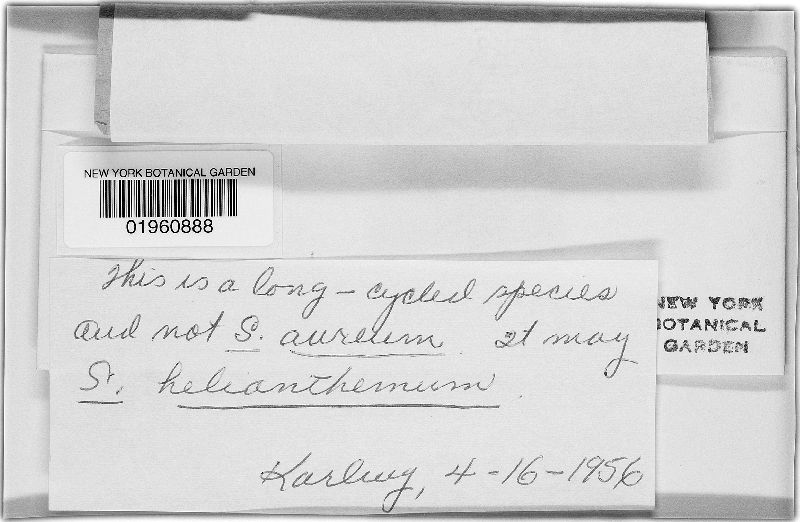 NEW YORK BOTANICAL GARDEN
01960888
This is a long-cycled species
and not S. aureum. It may
S. helianthemum.
Karling, 4-16-1956
NEW YORK
BOTANICAL
GARDEN